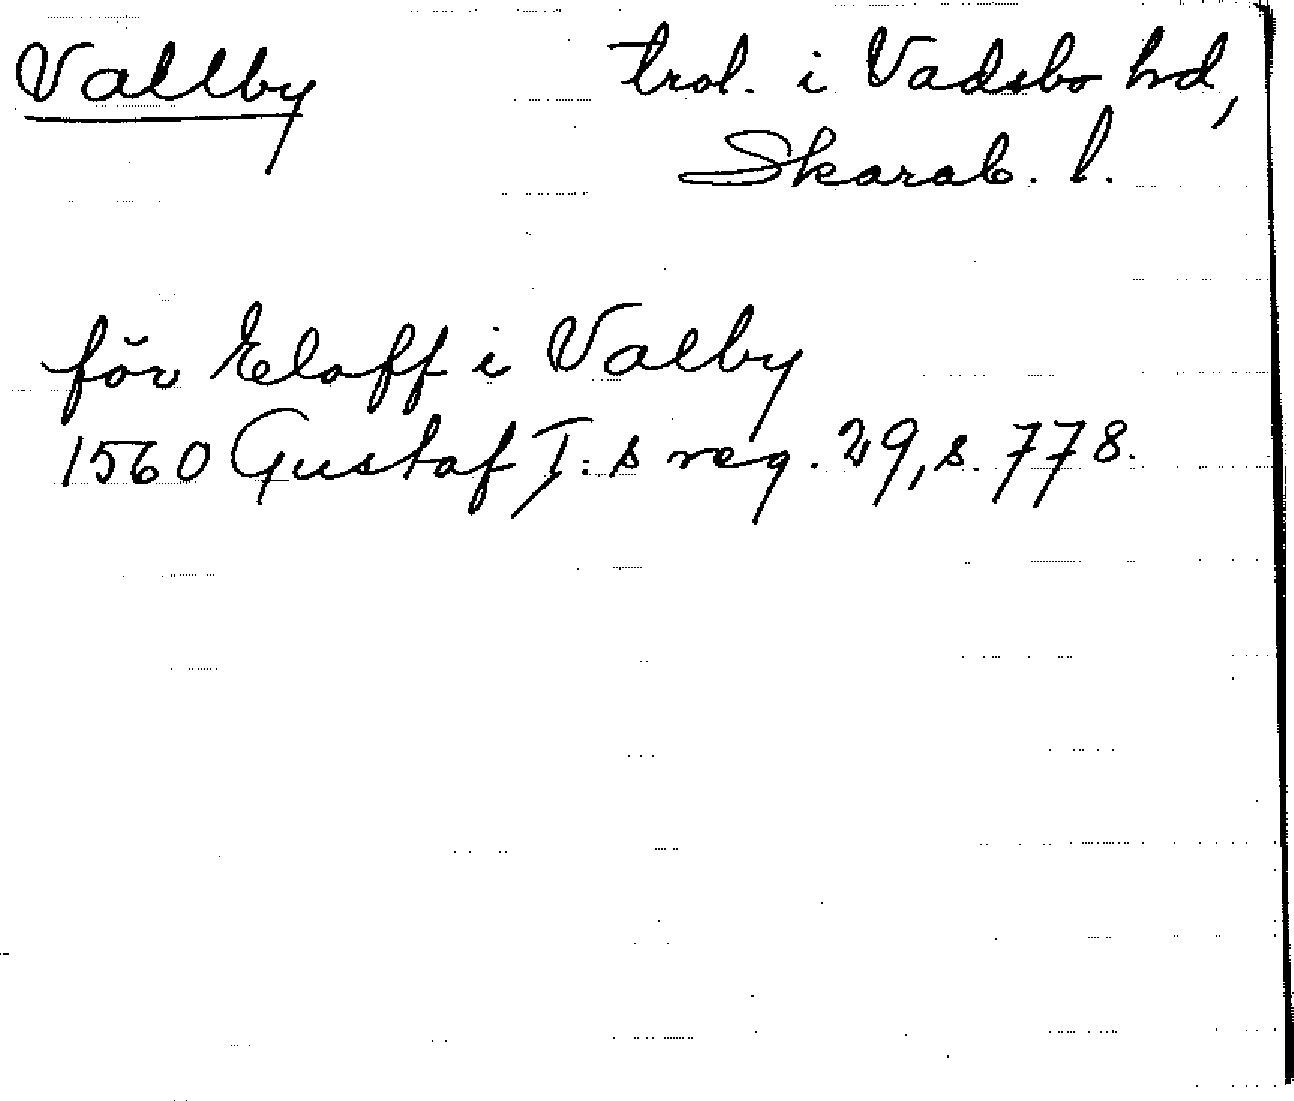 Vallby
trol. i Vadsbo hd,
Skarab. l.
för Eloff i Valby
1560 Gustaf I:s reg. 29, s. 778.